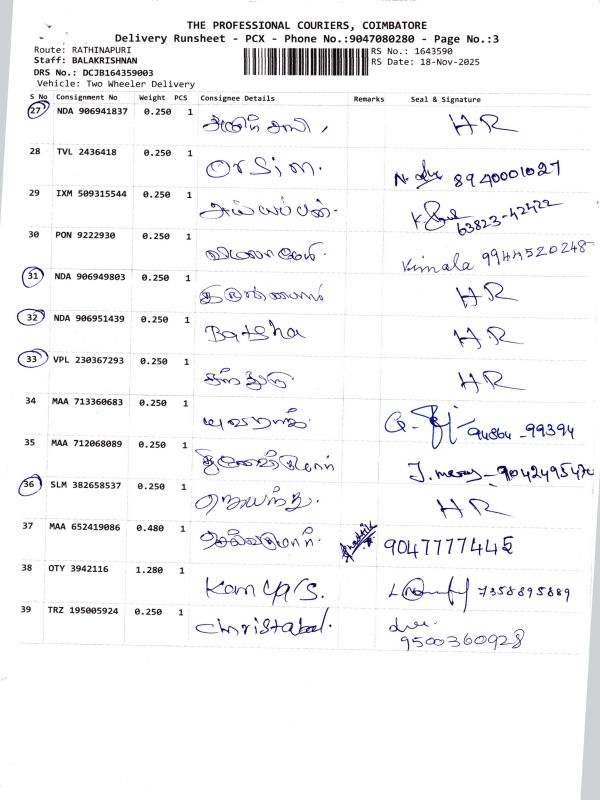 THE PROFESSIONAL COURIERS, COIMBATORE
Delivery Runsheet - PCX - Phone No.:9047080280 - Page No.:3
Route: RATHINAPURI RS No.: 1643590
Staff: BALAKRISHNAN RS Date: 18-Nov-2025
DRS No.: DCJB164359003
Vehicle: Two Wheeler Delivery
S No Consignment No Weight PCS Consignee Details Remarks Seal & Signature
27 NDA 906941837 0.250 1 HR
28 TVL 2436418 0.250 1 Orsin. 8940001027
29 IXM 509315544 0.250 1 அய்யப்பன். 63823-42422
30 PON 9222930 0.250 1 Vimala 9944520248
31 NDA 906949803 0.250 1 HR
32 NDA 906951439 0.250 1 Batsha HR
33 VPL 230367293 0.250 1 HR
34 MAA 713360683 0.250 1 யுவராஜ். 94864-99394
35 MAA 712068089 0.250 1 J. mercy-
36 SLM 382658537 0.250 1 HR
37 MAA 652419086 0.480 1 9047777445
38 OTY 3942116 1.280 1 7358895889
39 TRZ 195005924 0.250 1 Christabel.
9500360928